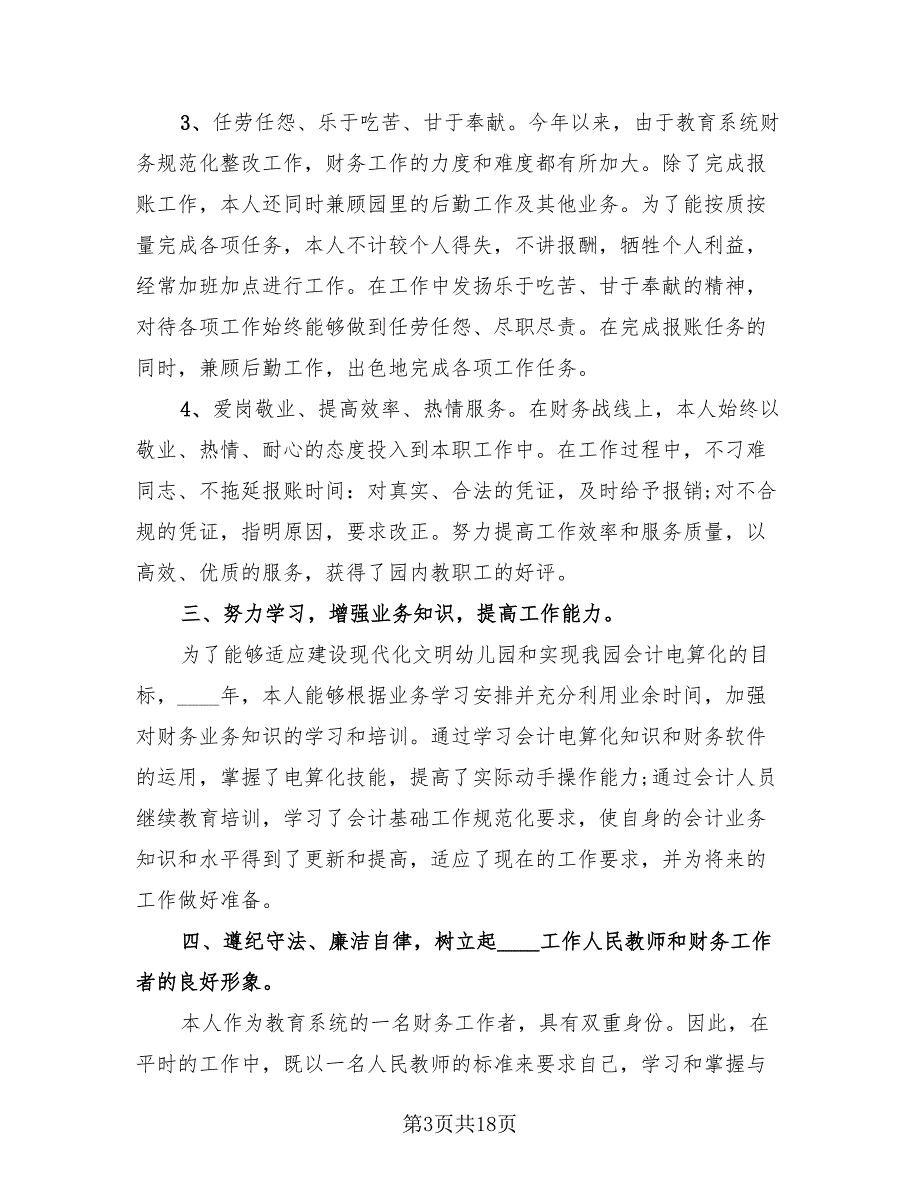 3、任劳任怨、乐于吃苦、甘于奉献。今年以来，由于教育系统财
务规范化整改工作，财务工作的力度和难度都有所加大。除了完成报
账工作，本人还同时兼顾园里的后勤工作及其他业务。为了能按质按
量完成各项任务，本人不计较个人得失，不讲报酬，牺牲个人利益，
经常加班加点进行工作。在工作中发扬乐于吃苦、甘于奉献的精神，
对待各项工作始终能够做到任劳任怨、尽职尽责。在完成报账任务的
同时，兼顾后勤工作，出色地完成各项工作任务。
4、爱岗敬业、提高效率、热情服务。在财务战线上，本人始终以
敬业、热情、耐心的态度投入到本职工作中。在工作过程中，不刁难
同志、不拖延报账时间：对真实、合法的凭证，及时给予报销;对不合
规的凭证，指明原因，要求改正。努力提高工作效率和服务质量，以
高效、优质的服务，获得了园内教职工的好评。
三、努力学习，增强业务知识，提高工作能力。
为了能够适应建设现代化文明幼儿园和实现我园会计电算化的目
标，____年，本人能够根据业务学习安排并充分利用业余时间，加强
对财务业务知识的学习和培训。通过学习会计电算化知识和财务软件
的运用，掌握了电算化技能，提高了实际动手操作能力;通过会计人员
继续教育培训，学习了会计基础工作规范化要求，使自身的会计业务
知识和水平得到了更新和提高，适应了现在的工作要求，并为将来的
工作做好准备。
四、遵纪守法、廉洁自律，树立起____工作人民教师和财务工作
者的良好形象。
本人作为教育系统的一名财务工作者，具有双重身份。因此，在
平时的工作中，既以一名人民教师的标准来要求自己，学习和掌握与
第3页共18页